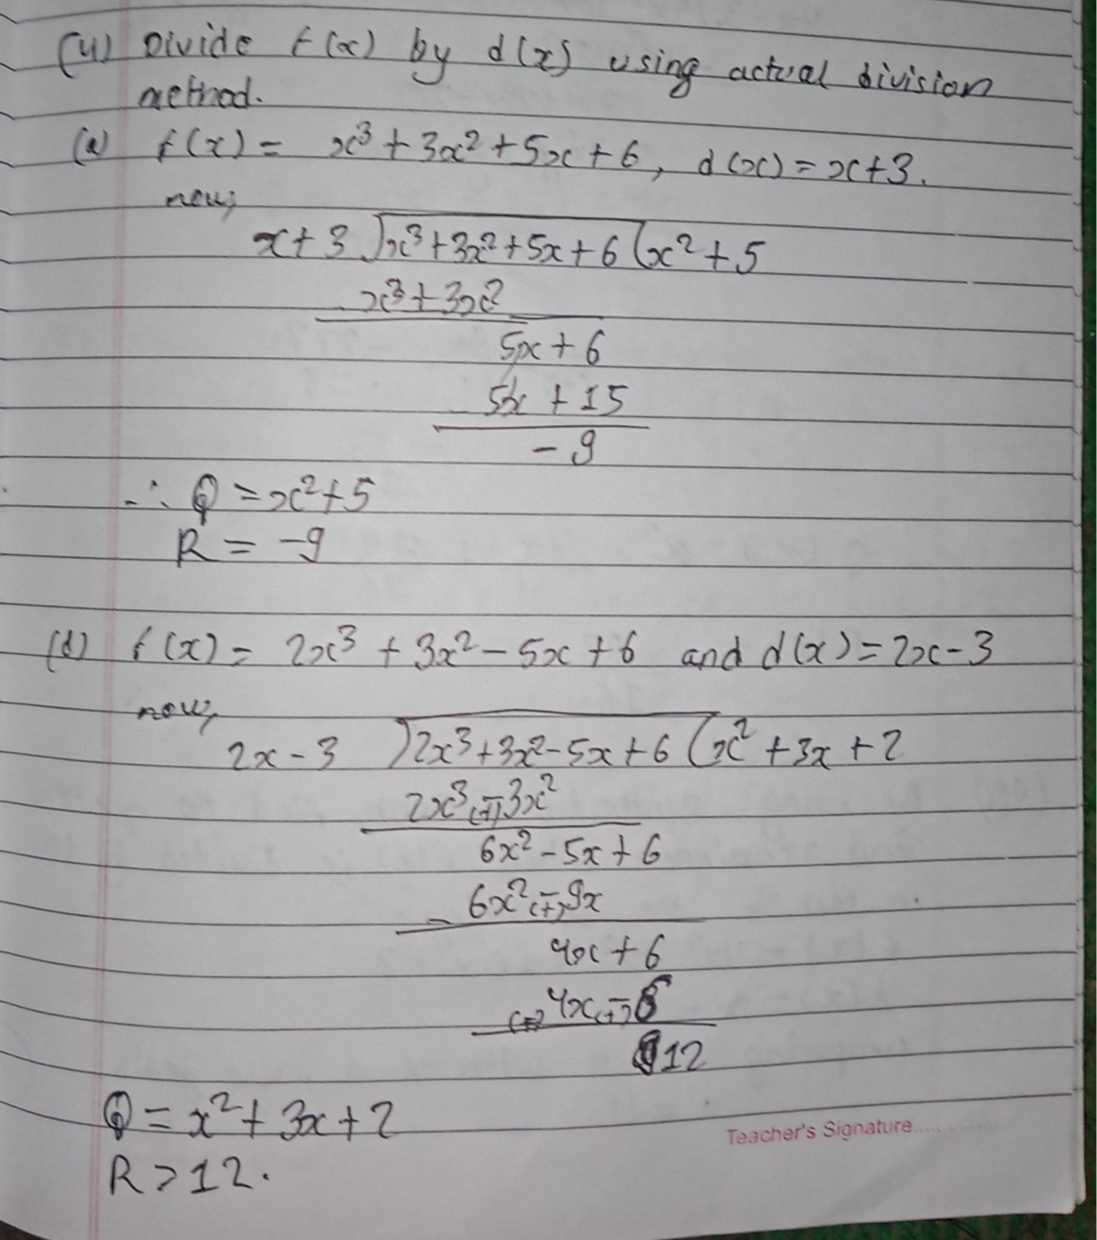 (4) Divide f(x) by d(x) using actual division
method.
(a) f(x) = x³ + 3x² + 5x + 6, d(x) = x+3.
now,
x+3 ) x³ + 3x² + 5x + 6 ( x² + 5
- x³ + 3x²
5x + 6
- 5x + 15
- 9
∴ Q = x² + 5
R = -9
(d) f(x) = 2x³ + 3x² - 5x + 6 and d(x) = 2x-3
now,
2x - 3 ) 2x³ + 3x² - 5x + 6 ( x² + 3x + 2
2x³ (+)- 3x²
6x² - 5x + 6
- 6x² (+)- 9x
4x + 6
(-) 4x (+)- 6
12
Q = x² + 3x + 2
R > 12.
Teacher's Signature..............